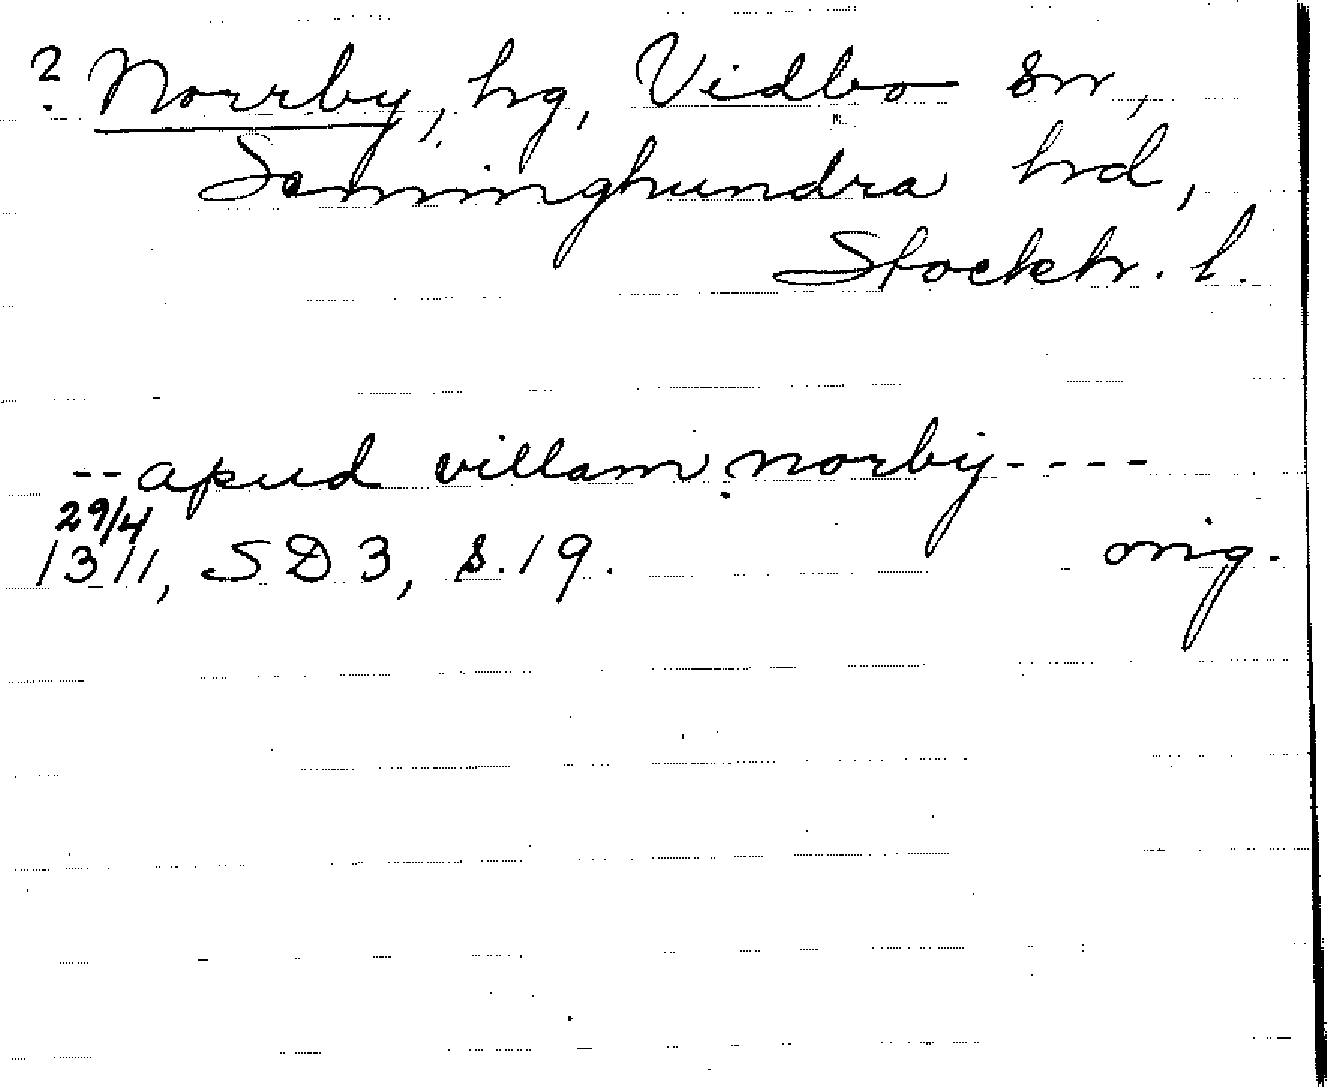 ? Norrby, hg, Vidbo sn,
Seminghundra hd,
Stockh. l.
-- apud villam norby ----
29/4
1311, SD 3, s. 19. orig.